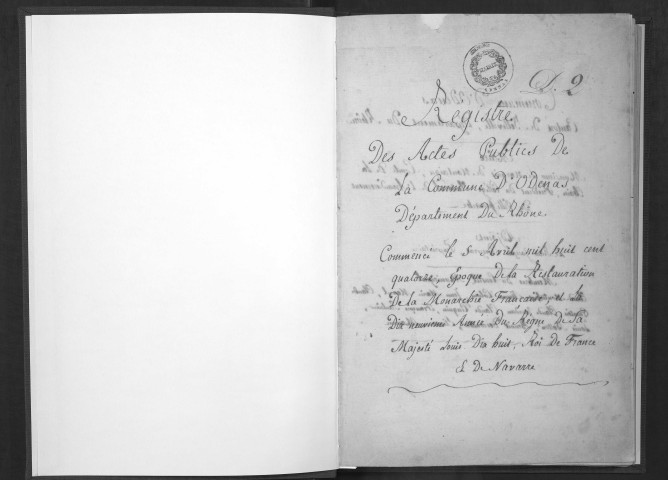 D. 2
Registre
Des Actes Publics De
La Commune D'Odenas
Département Du Rhône.
Commencé le 5 Avril mil huit cent
quatorze, Epoque de la Restauration
De la Monarchie Francaise, et la
Dix neuvieme Année Du Règne De Sa
Majesté Louis Dix huit, Roi de France
& De Navarre